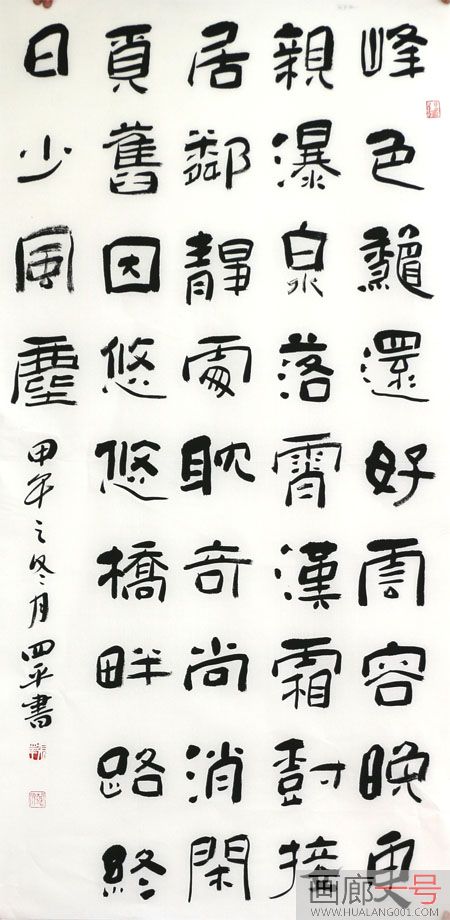 峰色龝還好雲容晚更
親瀑泉落霄漢霜尌接
居鄰靜處耽奇尚消閑
負舊因悠悠橋畔路終
日少風塵
甲午之冬月四平書
画廊一号
WWW.HUALANG001.COM